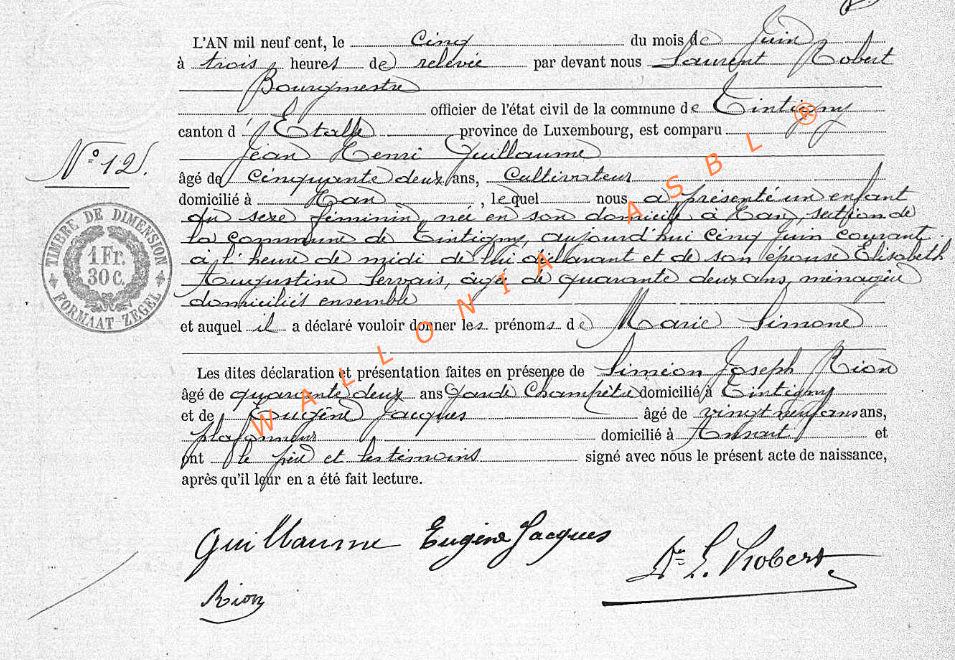 L'AN mil neuf cent, le cinq du mois de Juin
à trois heures de relevée par devant nous Laurent Robert
Bourgmestre
officier de l'état civil de la commune de Tintigny
canton d'Etalle province de Luxembourg, est comparu
Jean Henri Guillaume
N° 12.
âgé de cinquante deux ans, cultivateur
domicilié à Han, le quel nous a présenté un enfant
du sexe féminin, née en son domicile à Han, section de
la commune de Tintigny, aujourd'hui cinq juin courant
à l'heure de midi de lui déclarant et de son épouse Elisabeth
Augustine Servais, âgée de quarante deux ans, ménagère
domiciliés ensemble
et auquel il a déclaré vouloir donner les prénoms de Marie Simone
Les dites déclaration et présentation faites en présence de Siméon Joseph Rion
âgé de quarante deux ans garde champêtre domicilié à Tintigny
et de Eugène Jacques âgé de vingt neuf ans ans,
plafonneur domicilié à Ansart et
ont le père et les témoins signé avec nous le présent acte de naissance,
après qu'il leur en a été fait lecture.
Guillaume Eugène Jacques
Dr L. Robert
Rion
TIMBRE DE DIMENSION
1 Fr.
30 C.
FORMAAT ZEGEL
WALLONIA ASBL ®